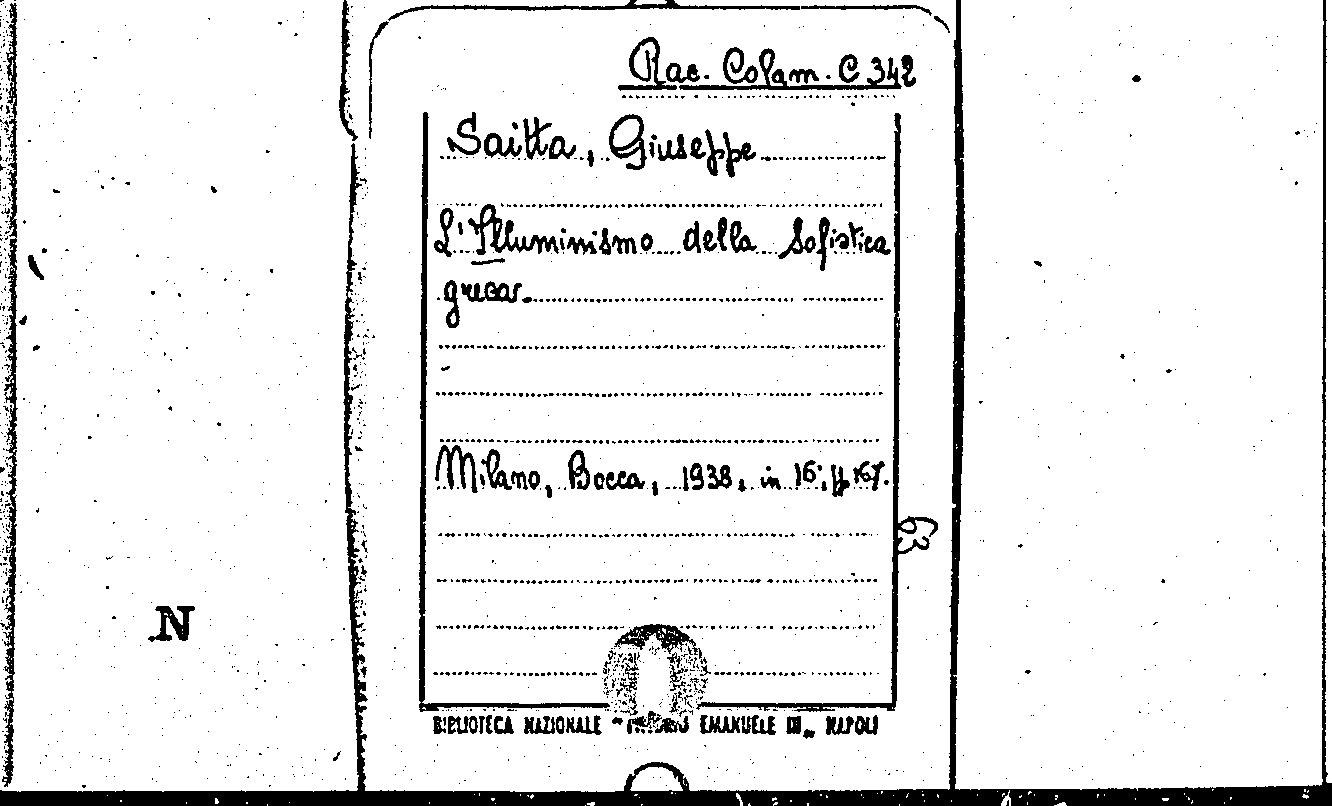 Rac. Colam. C 342
Saitta, Giuseppe
L'Illuminismo della sofistica
greca.
Milano, Bocca, 1938, in 16°, pp 167.
63
N
BIBLIOTECA NAZIONALE "VITTORIO EMANUELE III„ NAPOLI